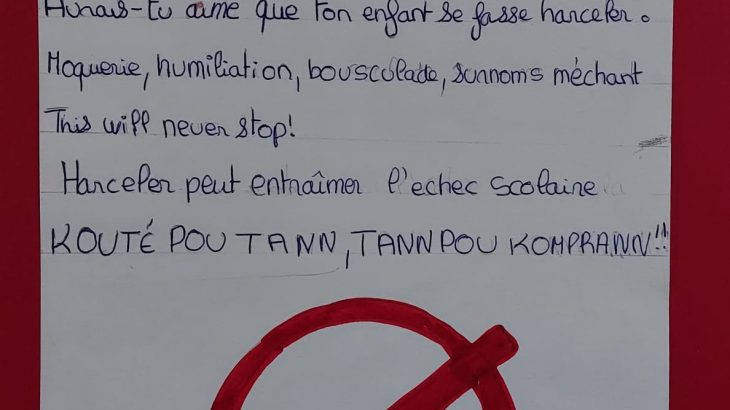 Aurais-tu aimé que ton enfant se fasse harceler.
Moquerie, humiliation, bousculade, surnoms méchant
This will never stop!
Harceler peut entraîmer l'echec scolaire
KOUTÉ POU TANN, TANN POU KOMPRANN!!